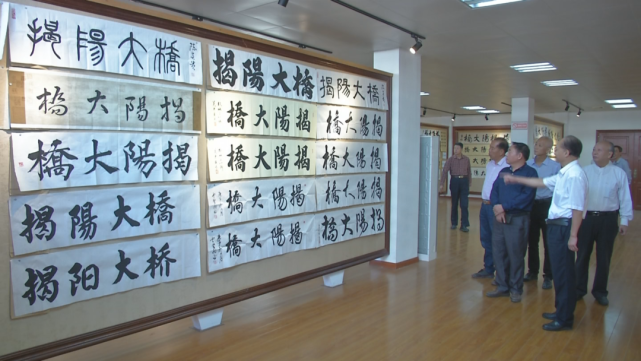 揭陽大橋
揭陽大橋
揭陽大橋
揭陽大橋
揭阳大桥
揭陽大橋
揭陽大橋
揭陽大橋
揭陽大橋
揭陽大橋
揭陽大橋
揭陽大橋
揭陽大橋
揭陽大橋
揭陽大橋